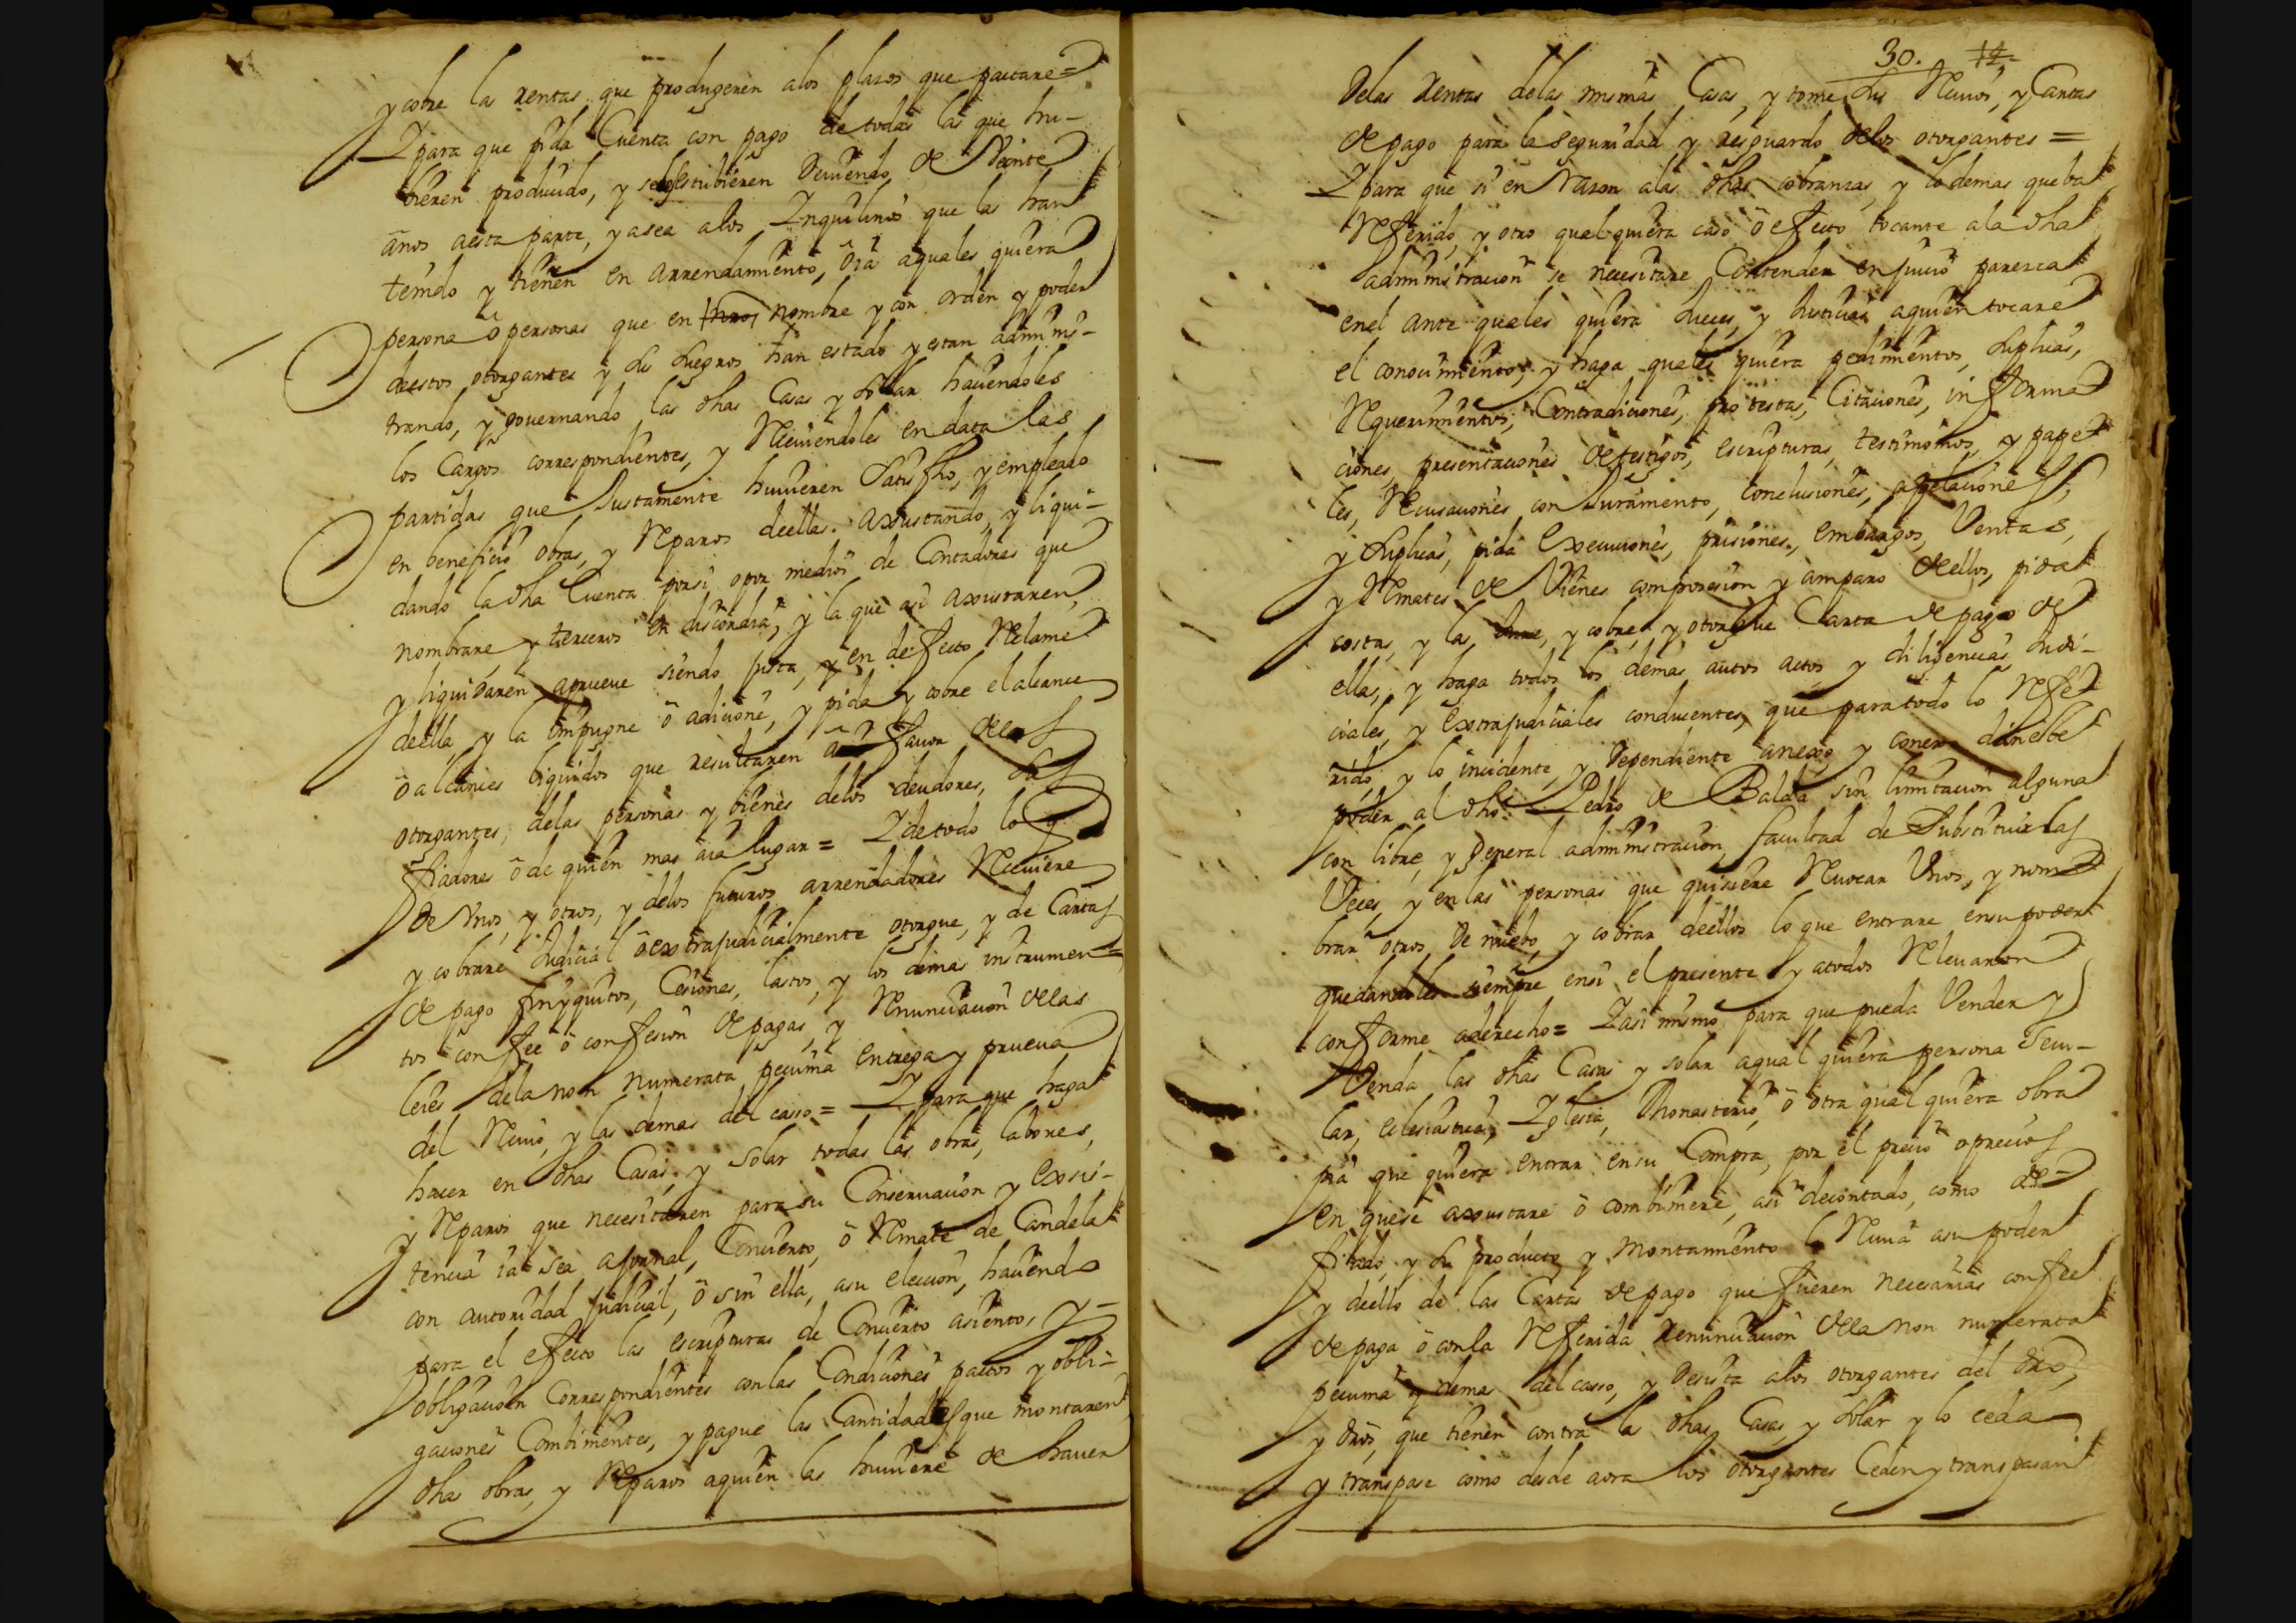 y cobre las rentas que produgeren alos plasos que pactare=
Y para que pida Cuenta con pago de todas las que hu-
bieren producido, y se les estubieren Deuiendo de Veinte
años aesta parte, yasea alos Ynquilinos que las han
tenido y tienen en Arrendamiento, ôia aquales quiera
persona ô personas que en nombre y con orden y poder
deestos otorgantes y sus suegros han estado y estan adminis-
trando, y gouernando las dhas Casas y Solar hauiendoles
los Cargos correspondientes, y Reciuiendoles en data las
partidas que Justamente huuieren Satisfho, y empleado
en beneficio obras, y Reparos deellas. Axustando, y liqui-
dando la dha Cuenta porsi, opor medios de Contadores que
nombrare y terceros en discordia, y la que asi axustaren,
y liquidaren aprueue siendo justa, y en defecto Reclame
deella, y la impugne ô adicione, y pida y cobre el alcance
ô alcances liquidos que resultaren â fauor delos
otorgantes, delas personas y bienes delos deudores, sus
fiadores ô de quien mas aia lugar = Y de todo lo q
de Vnos, y otros, y delos futuros arrendadores Reciuiere
y cobrare Judicial ôextrajudicialmente otorgue, y de Cartas
de pago finyquitos, Cesiones, lastos, y los demas instrumen=
tos con fee ô confesion de pagas, y Renunciacion delas
leies dela non numerata pecunia entrega y prueua
del Reciuo, y las demas del casso = Y para que haga
hacer en dhas Casas, y Solar todas las obras, labores,
y Reparos que necesitaren para su Conseruacion y Exsis-
tencia ia sea ajornal, Conuenio, ô Remate de Candela
con autoridad judicial, ô sin ella, asu eleccion, hauiendo
para el efecto las escripturas de Conuenio asientos, y-
obligacion Correspondientes conlas Condiciones pactos y obli-
gaciones Combinientes, y pague las Cantidades que montaren
dhas obras, y Reparos aquien las huuiere de hauer
30. 14
Delas Rentas delas mismas Casas, y tome sus Reciuos, y Cartas
de pago para la seguridad y resguardo delos otorgantes =
Y para que si en Rason alas dhas cobranzas, y lo demas que ba
Referido, y otro qual quiera caso ô efecto tocante ala dha
administracion se necesitare Contender en juicio paresca
enel ante quales quiera Jueces, y Justicias aquien tocare
el conocimiento, y haga quales quiera pedimentos, suplicas,
Requerimientos, Contradiciones, protestas, Citaciones, informa
ciones, presentaciones de testigos, escripturas, testimonios, y pape
les, Recusaciones con Juramento, conclusiones, apelaciones,
y suplicas, pida Execuciones, prisiones, embargos, Ventas,
y Remates de Vienes composesion y amparo deellos, pida
costas, y las Jure, y cobre, y otorgue Carta de pago de
ella, y haga todos los demas autos actos y diligencias Judi-
ciales, y Extrajudiciales conducentes, que paratodo lo Refe
rido, y lo incidente, y Dependiente anexo y conexo dieneste
poder al dho Pedro de Balda sin limitacion alguna
con libre, y general administracion, facultad de Substituir las
Veces, y en las personas que quisiere Reuocar Vnos, y nom
brar otros De nuebo, y cobrar deellos lo que entrare ensu poder
quedandoles siempre ensi el presente y atodos Releuaron
conforme aderecho = Yasi mismo para que pueda Vender y
Venda las dhas Casas y solar aqual quiera persona Secu-
lar, eclesiastica, Yglesia, Monasterio, ô otra qual quiera obra
pia que quiera entrar ensu Compra, por el precio oprecios
en que se axustare ô combiniere, asi decontado, como de
fiado, y su producto, y Montamiento lo Reciua asu poder
y deello de las Cartas depago que fueren necesarias confee
de paga ô conla Referida Renunciacion dela non numerata
pecunia y demas del casso, y Desista alos otorgantes del dro,
y dros, que tienen contra las dhas Casas, y Solar y lo ceda
y transpase como desde aora los otorgantes Ceden y transpasan